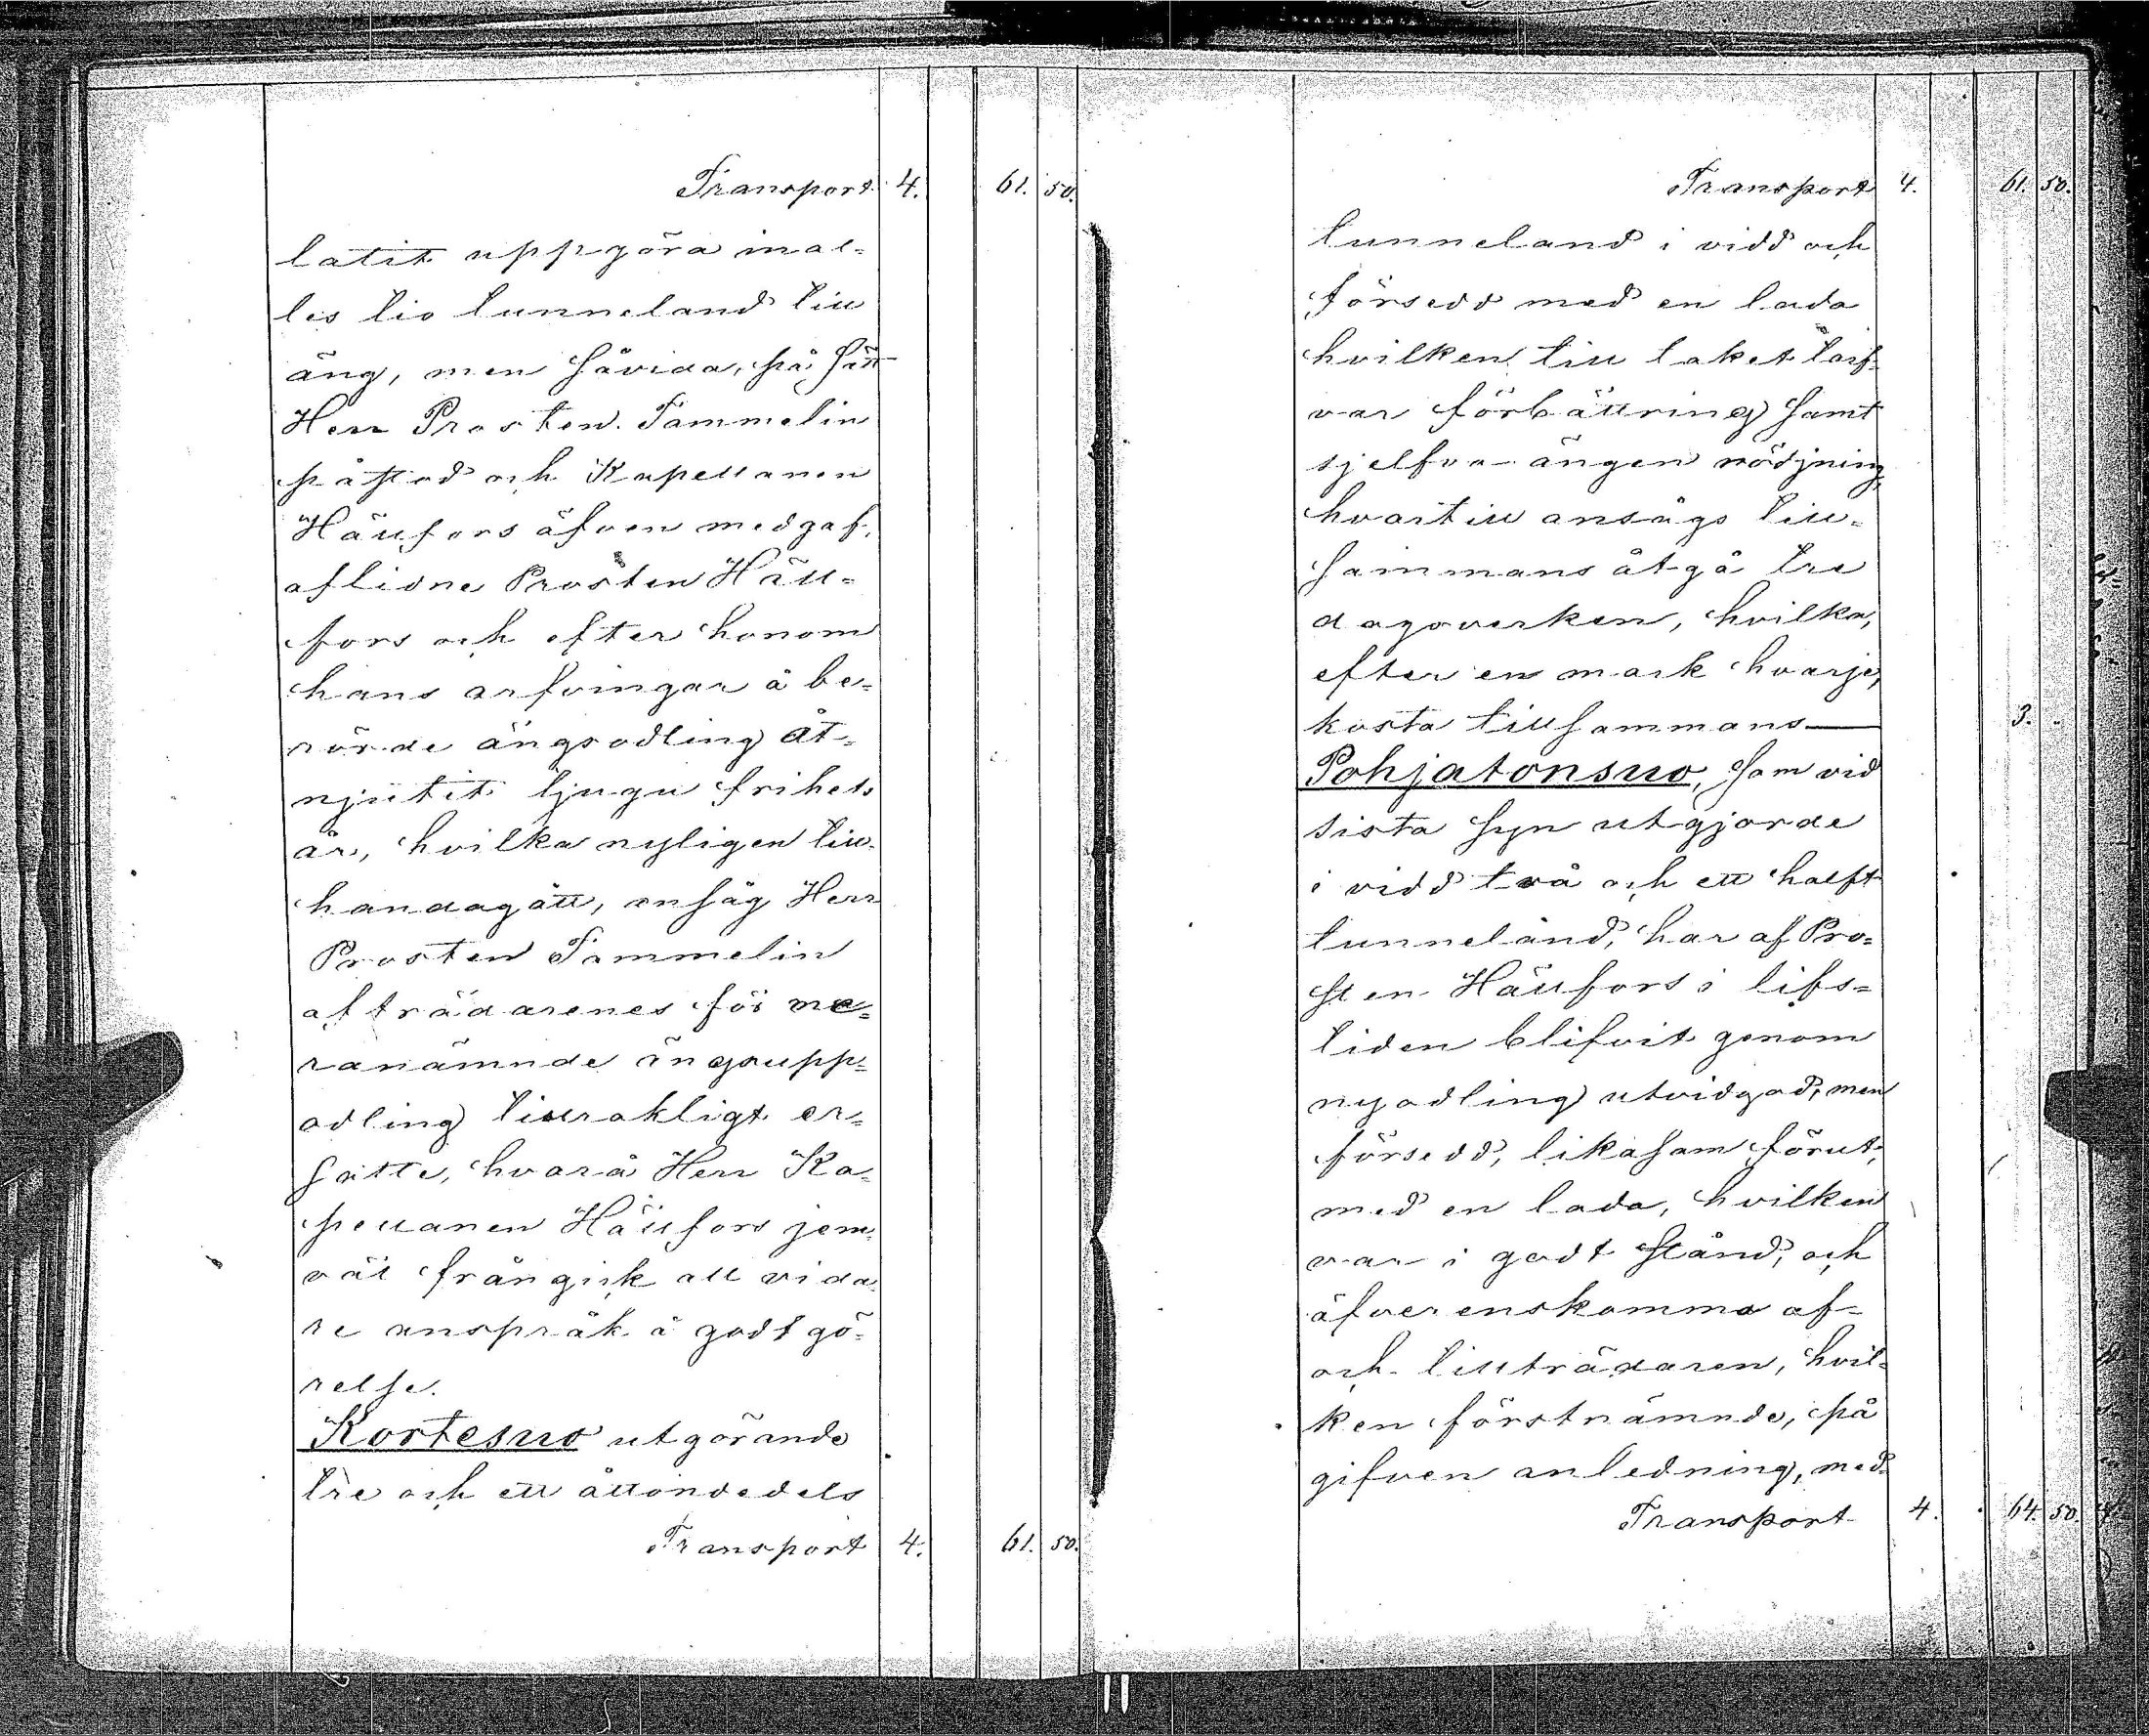 Transport 4. 61. 50.
låtit uppgöra inal-
les tio tunneland till
äng, men såvida, på sätt
Herr Prosten Tammelin
påstod och Kapellanen
Hällfors äfven medgaf,
aflidne Prosten Häll-
fors och efter honom
hans arfvingar å be-
rörde ängsodling åt-
njutit tjugu frihets
år, hvilka nyligen till-
handagått, ansåg Herr
Prosten Tammelin
afträdarenes för me-
ranämnde ängsupp-
odling tillräkligt er-
satte, hvarå Herr Ka-
pellanen Hällfors jem-
väl frångick all vida-
re anspråk å godtgö-
relse.
Kortesuo utgörande
tre och ett åttondedels
Transport 4. 61. 50.
Transport 4. 61. 50.
tunneland i vidd och
försedd med en lada
hvilken till taket tarf-
var förbättring samt
sjelfva ängen rödjning,
hvartill ansågs till-
sammans åtgå tre
dagsverken, hvilka,
efter en mark hvarje,
kosta tillsammans — 3. -
Pohjatonsuo, som vid
sista syn utgjorde
i vidd två och ett halft
tunneland, har af Pro-
sten Hällfors i lifs-
tiden blifvit genom
nyodling utvidgad, men
försedd, likasom förut,
med en lada, hvilken
var i godt stånd, och
äfverenskommo af-
och tillträdaren, hvil-
ken förstnämnde, på
gifven anledning, med-
Transport 4. 64. 50.